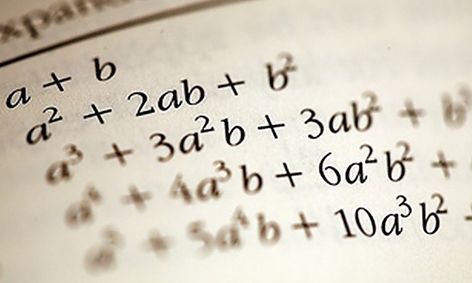 expan
a + b
a² + 2ab + b²
a³ + 3a²b + 3ab² + b
a⁴ + 4a³b + 6a²b² +
a⁵ + 5a⁴b + 10a³b² +